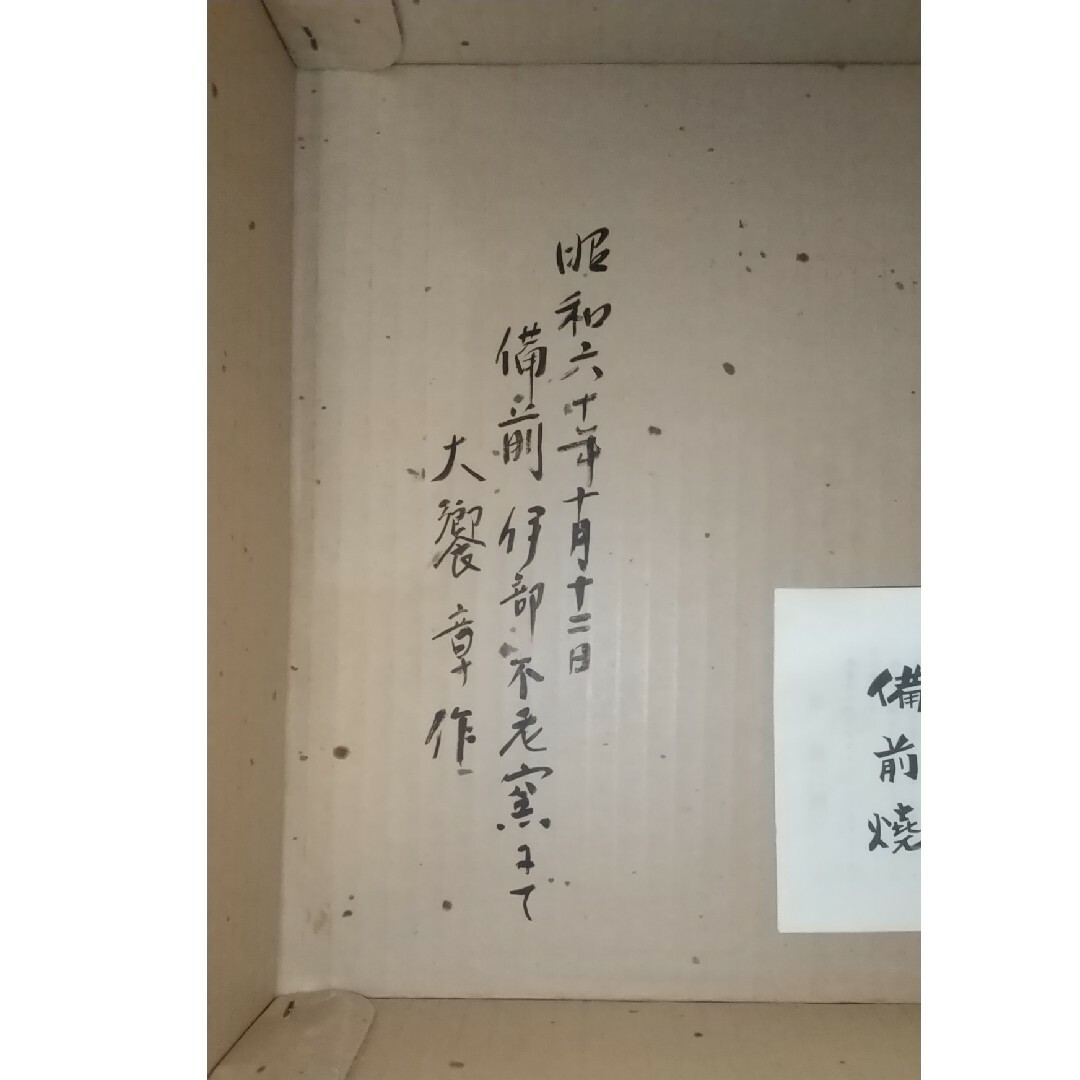 備前焼
昭和六十年十月十二日
備前伊部不老窯にて
大饗章作